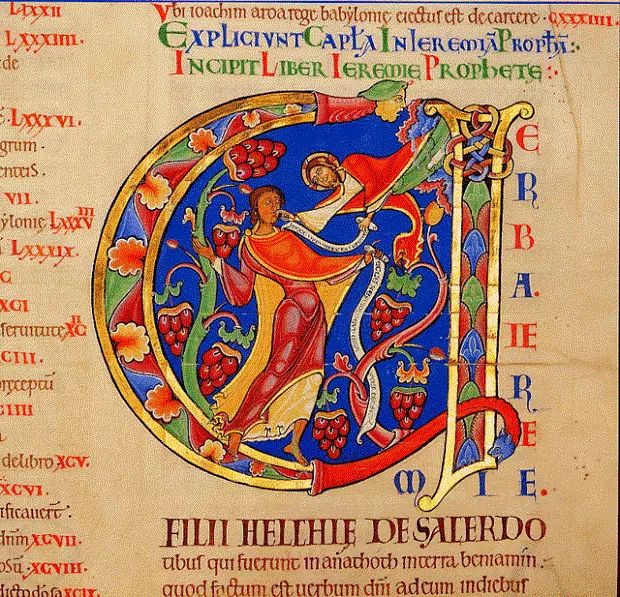 LXXXII
LXXXIII.
de
LXXXVI.
grum·
enteris.
VII.
ylonie
LXXXIX.
C
XCI
seruitute XC II
CIII.
CIIII
a
delibro XCV.
XCVI.
ificauert·.
dnm XCVII.
osu·XCVIII.
XCIX.
Vbi ioachim aroa rege babylonie eiectus est de carcere· CXXXIIII.
EXPLICIVNT CAPLA IN IEREMIA PROPHA:·
INCIPIT LIBER IEREMIE PROPHETE:·
V
E
R
B
A.
IE
R
E
M I E.
FILII HELCHIE DE SACERDO
tibus qui fuerunt in anathoth in terra beniamin·
quod factum est uerbum dni ad eum in diebus